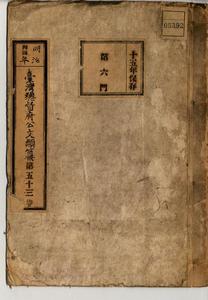 十五年保存
第六門
明治
四四年
臺灣總督府公文類纂第五十三卷